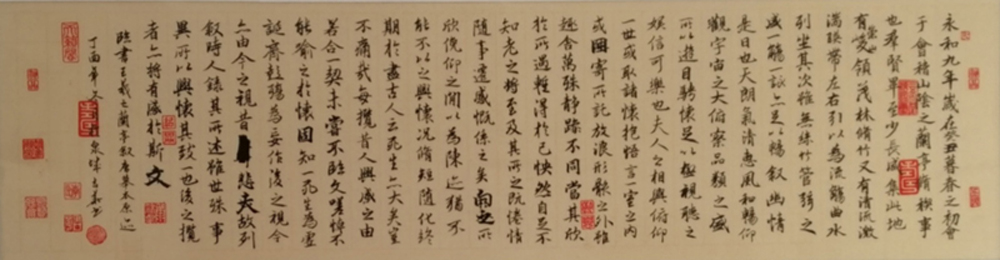 永和九年歲在癸丑暮春之初會
于會稽山陰之蘭亭脩稧事
也羣賢畢至少長咸集此地
有崇山峻領茂林脩竹又有清流激
湍暎帶左右引以為流觴曲水
列坐其次雖無絲竹管弦之
盛一觴一詠亦足以暢敘幽情
是日也天朗氣清惠風和暢仰
觀宇宙之大俯察品類之盛
所以遊目騁懷足以極視聽之
娛信可樂也夫人之相與俯仰
一世或取諸懷抱悟言一室之內
或因寄所託放浪形骸之外雖
趣舍萬殊靜躁不同當其欣
於所遇蹔得於己快然自足不
知老之將至及其所之既惓情
隨事遷感慨係之矣向之所
欣俛仰之間以為陳迹猶不
能不以之興懷況脩短隨化終
期於盡古人云死生亦大矣豈
不痛哉每攬昔人興感之由
若合一契未嘗不臨文嗟悼不
能喻之於懷固知一死生為虛
誕齊彭殤為妄作後之視今
亦由今之視昔悲夫故列
敘時人錄其所述雖世殊事
異所以興懷其致一也後之攬
者亦將有感於斯文
臨書王羲之蘭亭敘唐摹本
丁酉 泉城